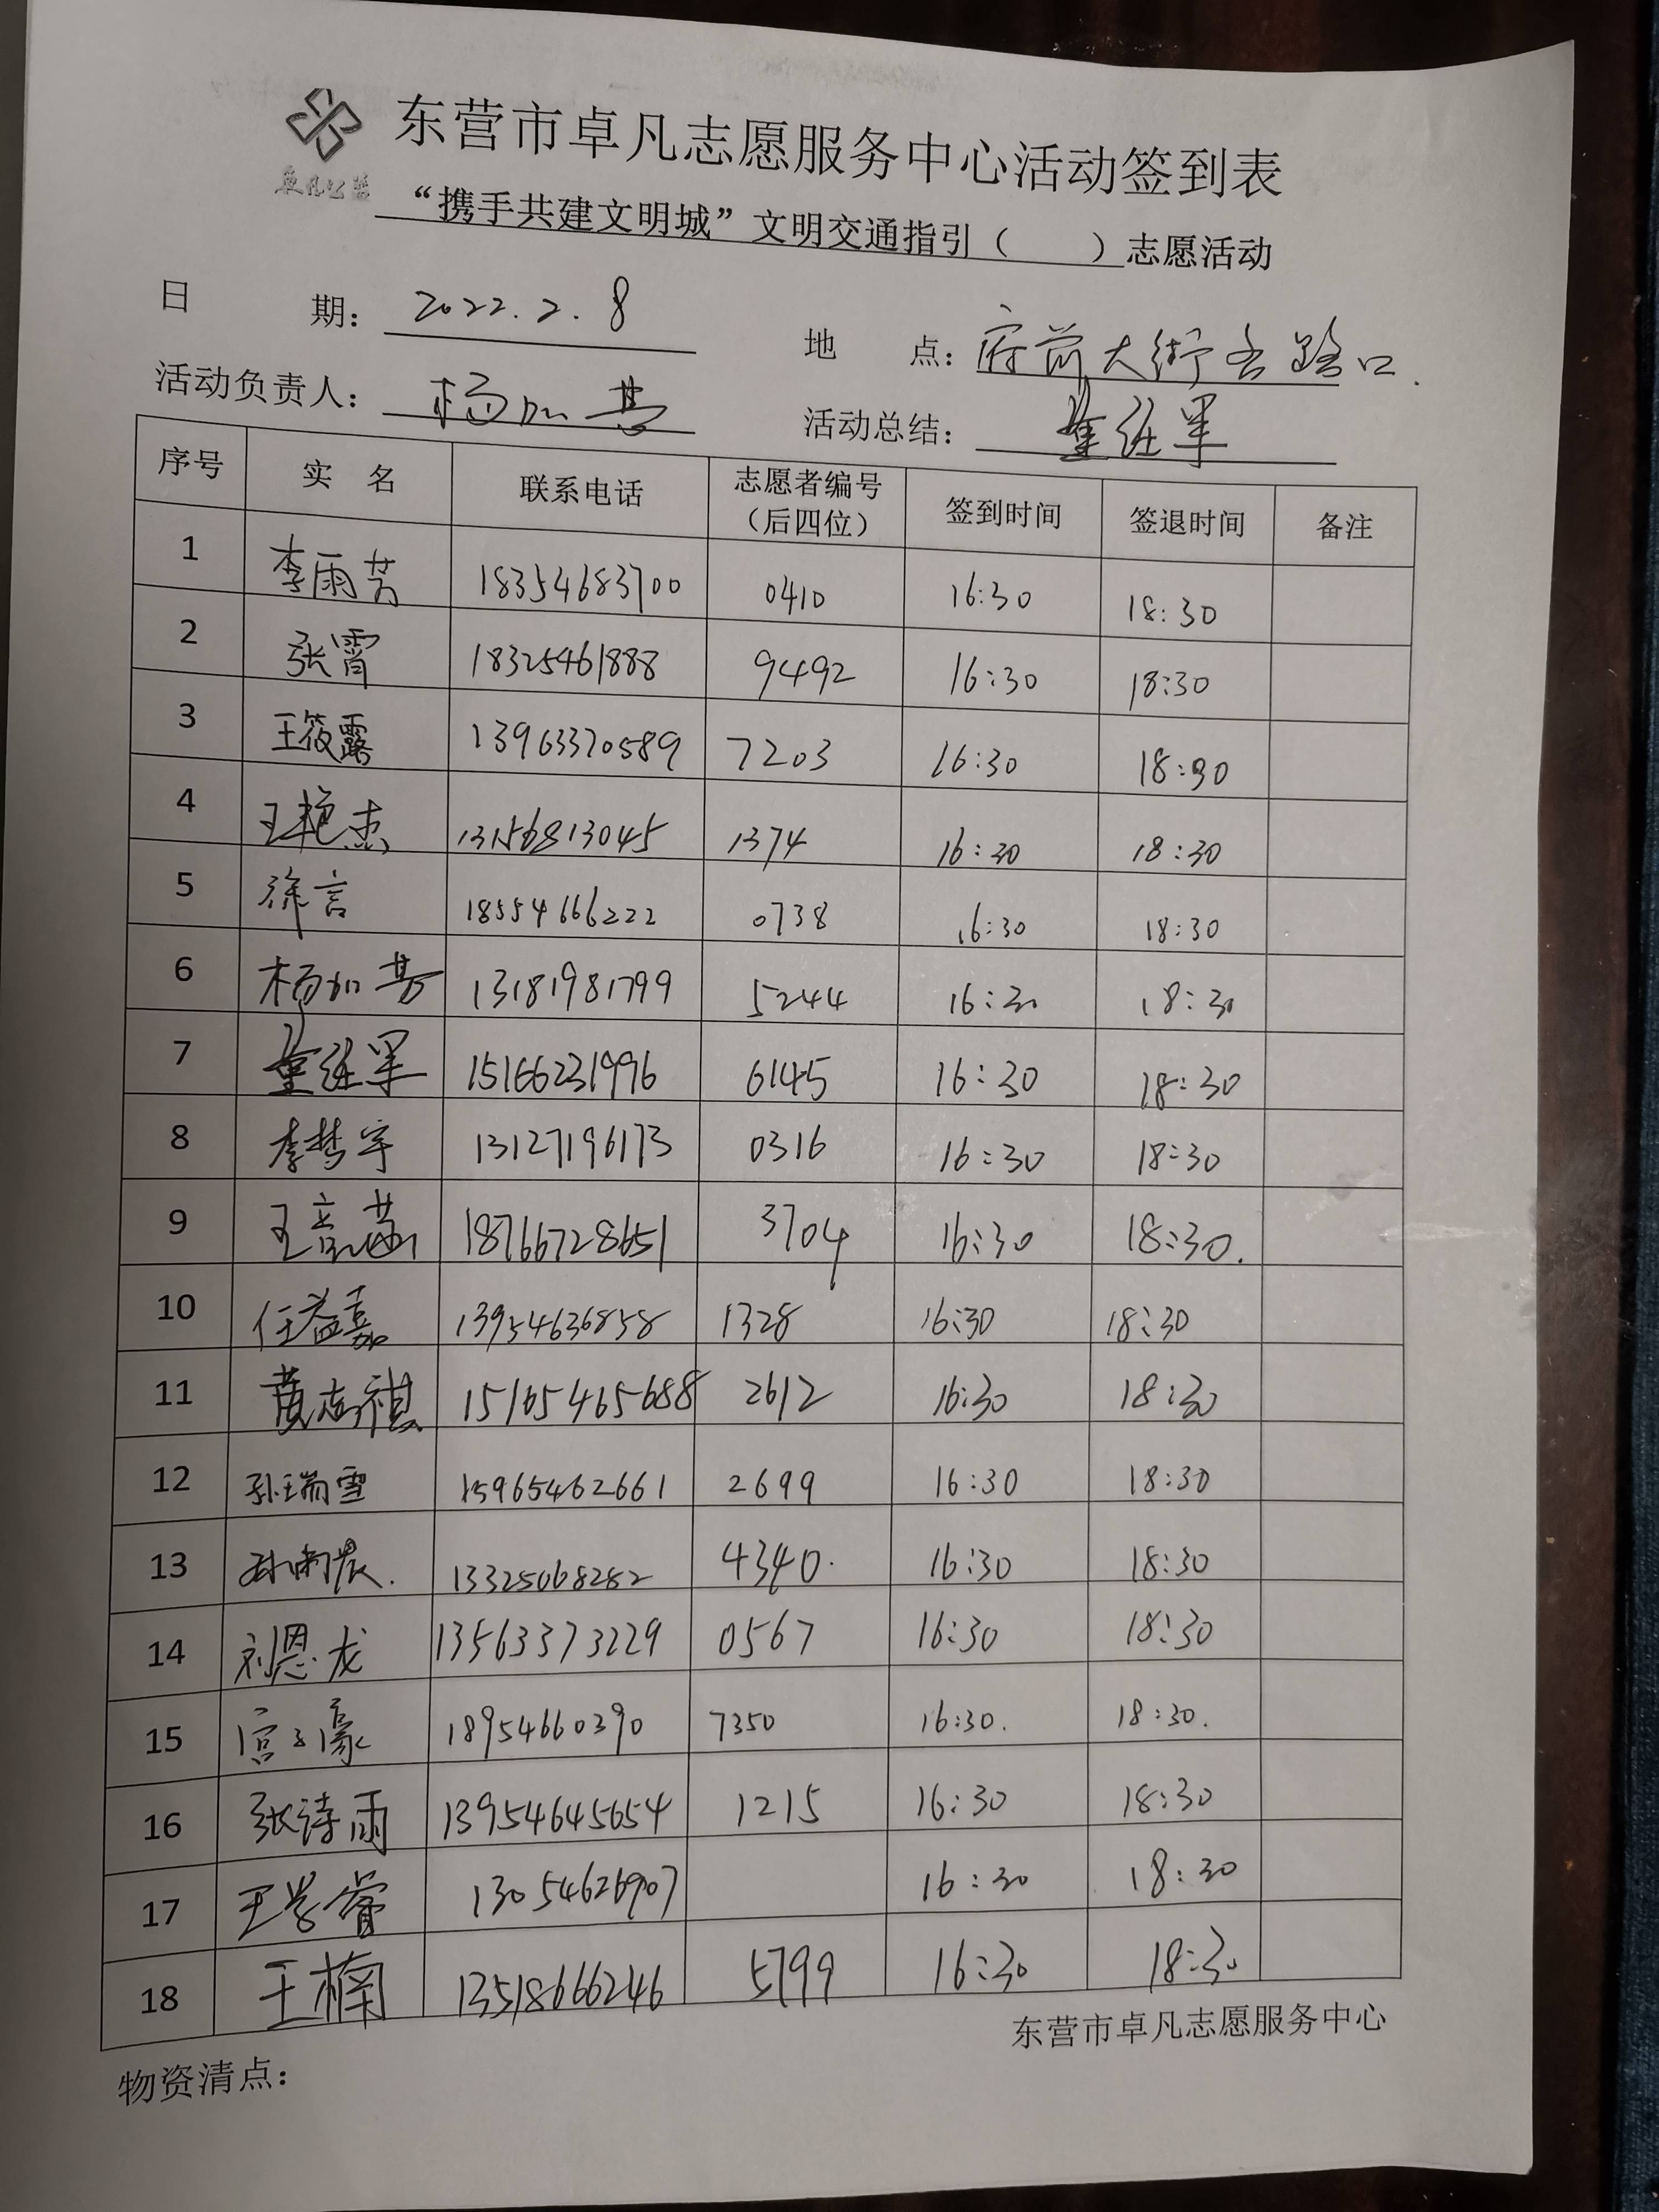 卓凡公益
东营市卓凡志愿服务中心活动签到表
“携手共建文明城”文明交通指引（　　）志愿活动
日　　期： 2022.2.8　地　点： 府前大街各路口.
活动负责人： 杨加芸　活动总结：
序号 实 名 联系电话 志愿者编号（后四位） 签到时间 签退时间 备注
1 李雨芳 18354683700 0410 16:30 18:30
2 张霄 18325461888 9492 16:30 18:30
3 王筱露 13963370589 7203 16:30 18:30
4 王艳杰 13156813045 1374 16:30 18:30
5 徐言 18554666222 0738 16:30 18:30
6 杨加芸 13181981799 5244 16:30 18:30
7 15166231996 6145 16:30 18:30
8 李梦宇 13127196173 0316 16:30 18:30
9 王 18766728651 3704 16:30 18:30.
10 任益嘉 13954636858 1328 16:30 18:30
11 黄志祺 15165465688 2612 16:30 18:30
12 孙瑞雪 15965462661 2699 16:30 18:30
13 孙雨晨. 13325068282 4340. 16:30 18:30
14 刘恩龙 13563373229 0567 16:30 18:30
15 宫子豪 18954660390 7350 16:30. 18:30.
16 张诗雨 13954645654 1215 16:30 18:30
17 王学睿 13054626907 16:30 18:30
18 王楠 13518666246 5799 16:30 18:30
东营市卓凡志愿服务中心
物资清点：